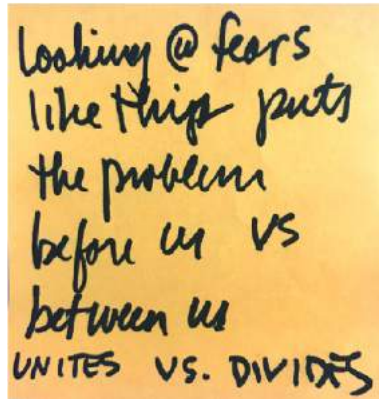 Looking @ fears
like this puts
the problem
before us vs
between us
UNITES VS. DIVIDES